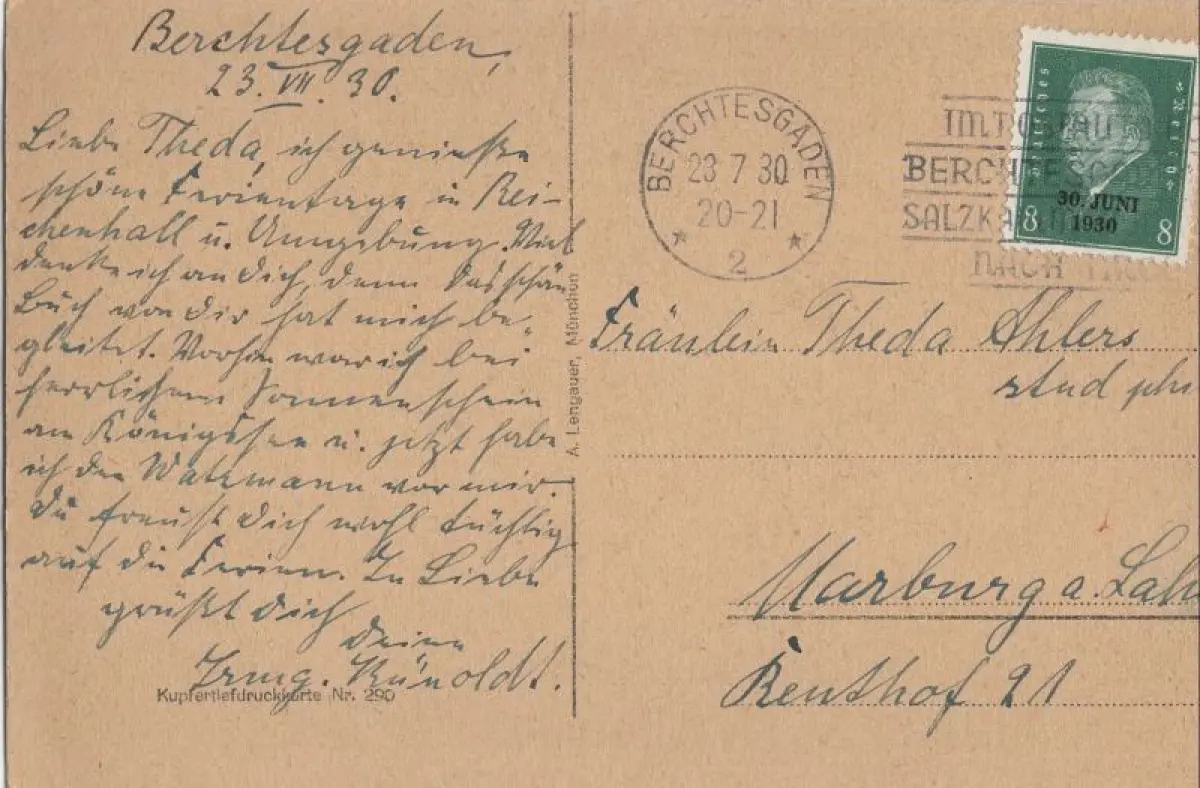 Berchtesgaden,
23. VII. 30.
Liebe Theda, ich genieße
schöne Ferientage in Rei-
chenhall u. Umgebung. Viel
denke ich an Dich, denn das schöne
Buch von Dir hat mich be-
gleitet. Vorhin war ich bei
herrlichem Sonnenschein
am Königssee u. jetzt habe
ich den Watzmann vor mir.
Du freust Dich wohl tüchtig
auf die Ferien. In Liebe
grüßt Dich
Deine
Irmg.
Kupfertiefdruckkarte Nr. 290
A. Lengauer, München
BERCHTESGADEN
23 7 30
20-21
2
IM
BERCHTESG
SALZKA
NACH
Deutsches Reich
30. JUNI
1930
8 8
Fräulein Theda Ahlers
stud phi
Marburg a. Lah
Renthof 21